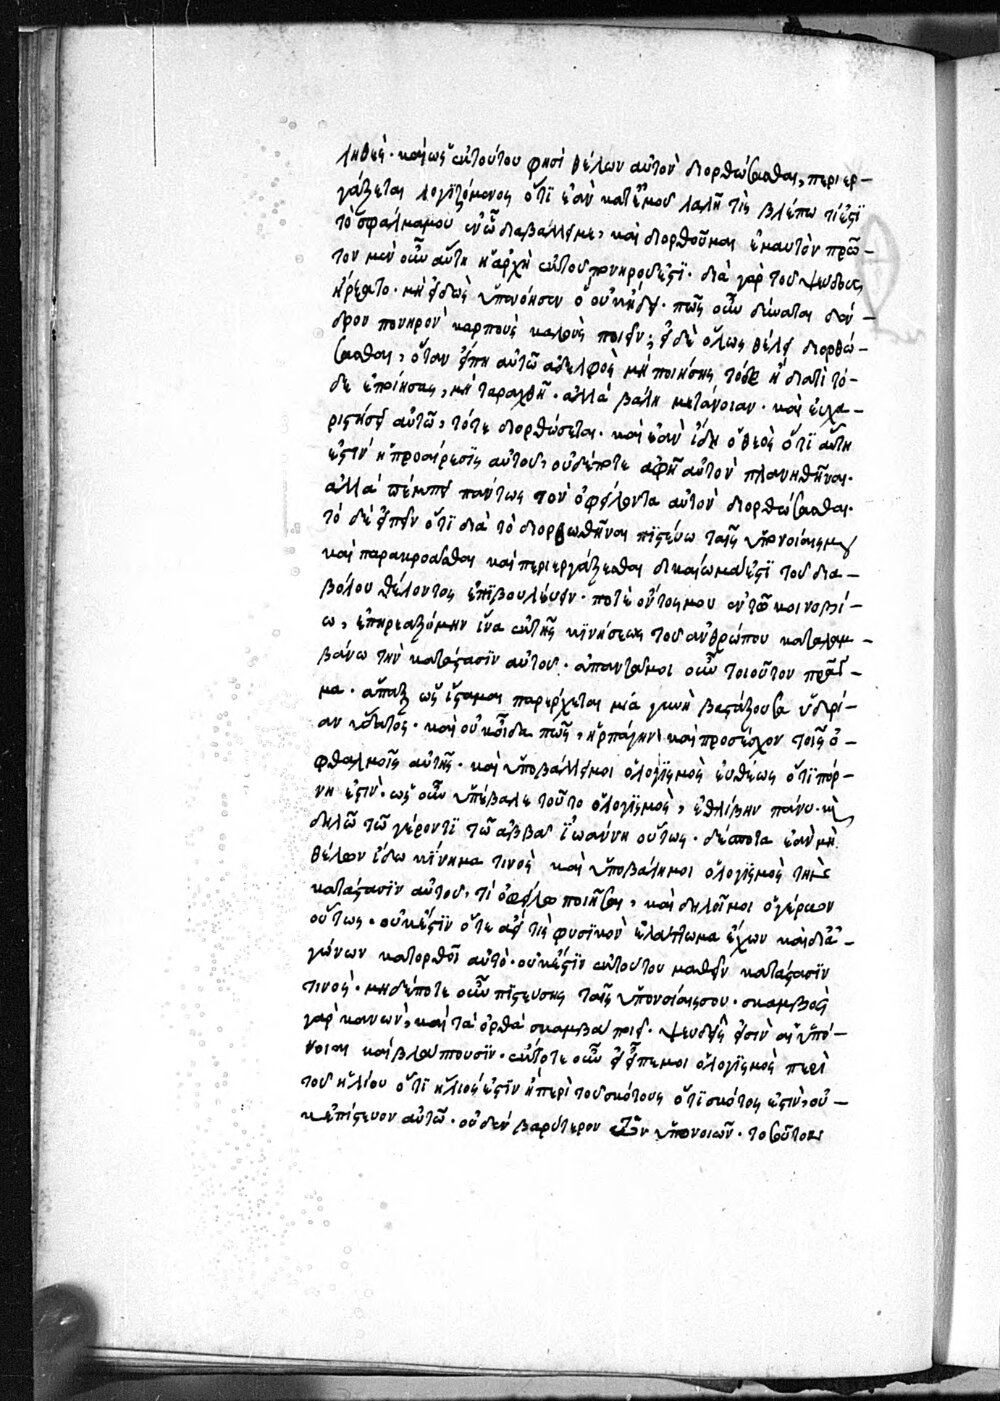 ληθές· καὶ ὡς ἐκ τούτου φησὶ θέλων αὐτὸν διορθώσασθαι, περιερ–
γάζεται λογιζόμενος ὅτι ἐὰν κατ' ἐμοῦ λαλῇ τὶς βλέπω τί ἐστὶ
τὸ σφάλμα μοῦ ἐν ᾧ διαβάλλει με, καὶ διορθοῦμαι ἐμαυτὸν πρῶ–
τον μὲν οὖν αὕτη ἡ ἀρχὴ ἐκ τοῦ πονηροῦ ἐστὶ· διὰ γὰρ τοῦ ψεύδους
ἤρξατο· μὴ εἰδὼς ὑπενόησεν ὃ οὐκ ᾔδει· πῶς οὖν δύναται δέν–
δρον πονηρὸν καρποὺς καλοὺς ποιεῖν; εἰ δὲ ὅλως θέλει διορθώ–
σασθαι, ὅταν εἴπῃ αὐτῷ ἀδελφὸς μὴ ποιήσῃς τόδε ἢ διατί τό–
δε ἐποίησας, μὴ ταραχθῇ· ἀλλὰ βάλῃ μετάνοιαν· καὶ εὐχα–
ριστήσει αὐτῷ, τότε διορθώσεται· καὶ ἐὰν ἴδῃ ὁ θεὸς ὅτι αὕτη
ἐστὶν ἡ προαίρεσις αὐτοῦ, οὐδέποτε ἀφῇ αὐτὸν πλανηθῆναι·
ἀλλὰ πέμπει πάντως τὸν ὀφείλοντα αὐτὸν διορθώσασθαι·
τὸ δὲ εἰπεῖν ὅτι διὰ τὸ διορθωθῆναι πιστεύω ταῖς ὑπονοίαις μου
καὶ παρακροᾶσθαι καὶ περιεργάζεσθαι δικαίωμα ἐστὶ τοῦ δια–
βόλου θέλοντος ἐπιβουλεύειν· ποτὲ ὄντος μου ἐν τῷ κοινοβί–
ω, ἐπηρεαζόμην ἵνα ἐκ τῆς κινήσεως τοῦ ἀνθρώπου καταλαμ–
βάνω τὴν κατάστασιν αὐτοῦ· ἀπαντᾶ μοι οὖν τοιοῦτον πρᾶγ–
μα· ἅπαξ ὡς ἵσταμαι παρέρχεται μία γυνὴ βαστάζουσα ὑδρί–
αν ὕδατος· καὶ οὐκ οἶδα πῶς, ἡρπάγην καὶ προσέσχον τοῖς ὀ–
φθαλμοῖς αὐτῆς· καὶ ὑποβάλλει μοι ὁ λογισμὸς εὐθέως ὅτι πόρ–
νη ἐστὶν· ὡς οὖν ὑπέβαλε τοῦτο ὁ λογισμὸς, ἐθλίβην πάνυ· καὶ
δηλῶ τῷ γέροντι τῷ ἀββᾶ ἰωάννῃ οὕτως· δέσποτα ἐὰν μὴ
θέλων ἴδω κίνημα τινὸς καὶ ὑποβάλῃ μοι ὁ λογισμὸς τὴν
κατάστασιν αὐτοῦ, τί ὀφείλω ποιῆσαι, καὶ δηλοῖ μοι ὁ γέρων
οὕτως· οὐκ ἔστιν ὅτε ἀεί τις φυσικὸν ἐλάττωμα ἔχων καὶ δι' ἀ–
γώνων κατορθοῖ αὐτὸ· οὐκ ἔστιν ἐκ τούτου μαθεῖν κατάστασίν
τινος· μηδέποτε οὖν πιστεύσῃς ταῖς ὑπονοίαις σου· σκαμβὸς
γὰρ κανὼν, καὶ τὰ ὀρθὰ σκαμβὰ ποιεῖ· ψευδεῖς εἰσὶν αἱ ὑπό–
νοιαι καὶ βλάπτουσιν· ἔκτοτε οὖν εἰ εἶπέ μοι ὁ λογισμὸς περὶ
τοῦ ἡλίου ὅτι ἥλιός ἐστιν ἢ περὶ τοῦ σκότους ὅτι σκότος ἐστὶν, οὐ–
κ ἐπίστευον αὐτῷ· οὐδὲν βαρύτερον τῶν ὑπονοιῶν· τοσοῦτον